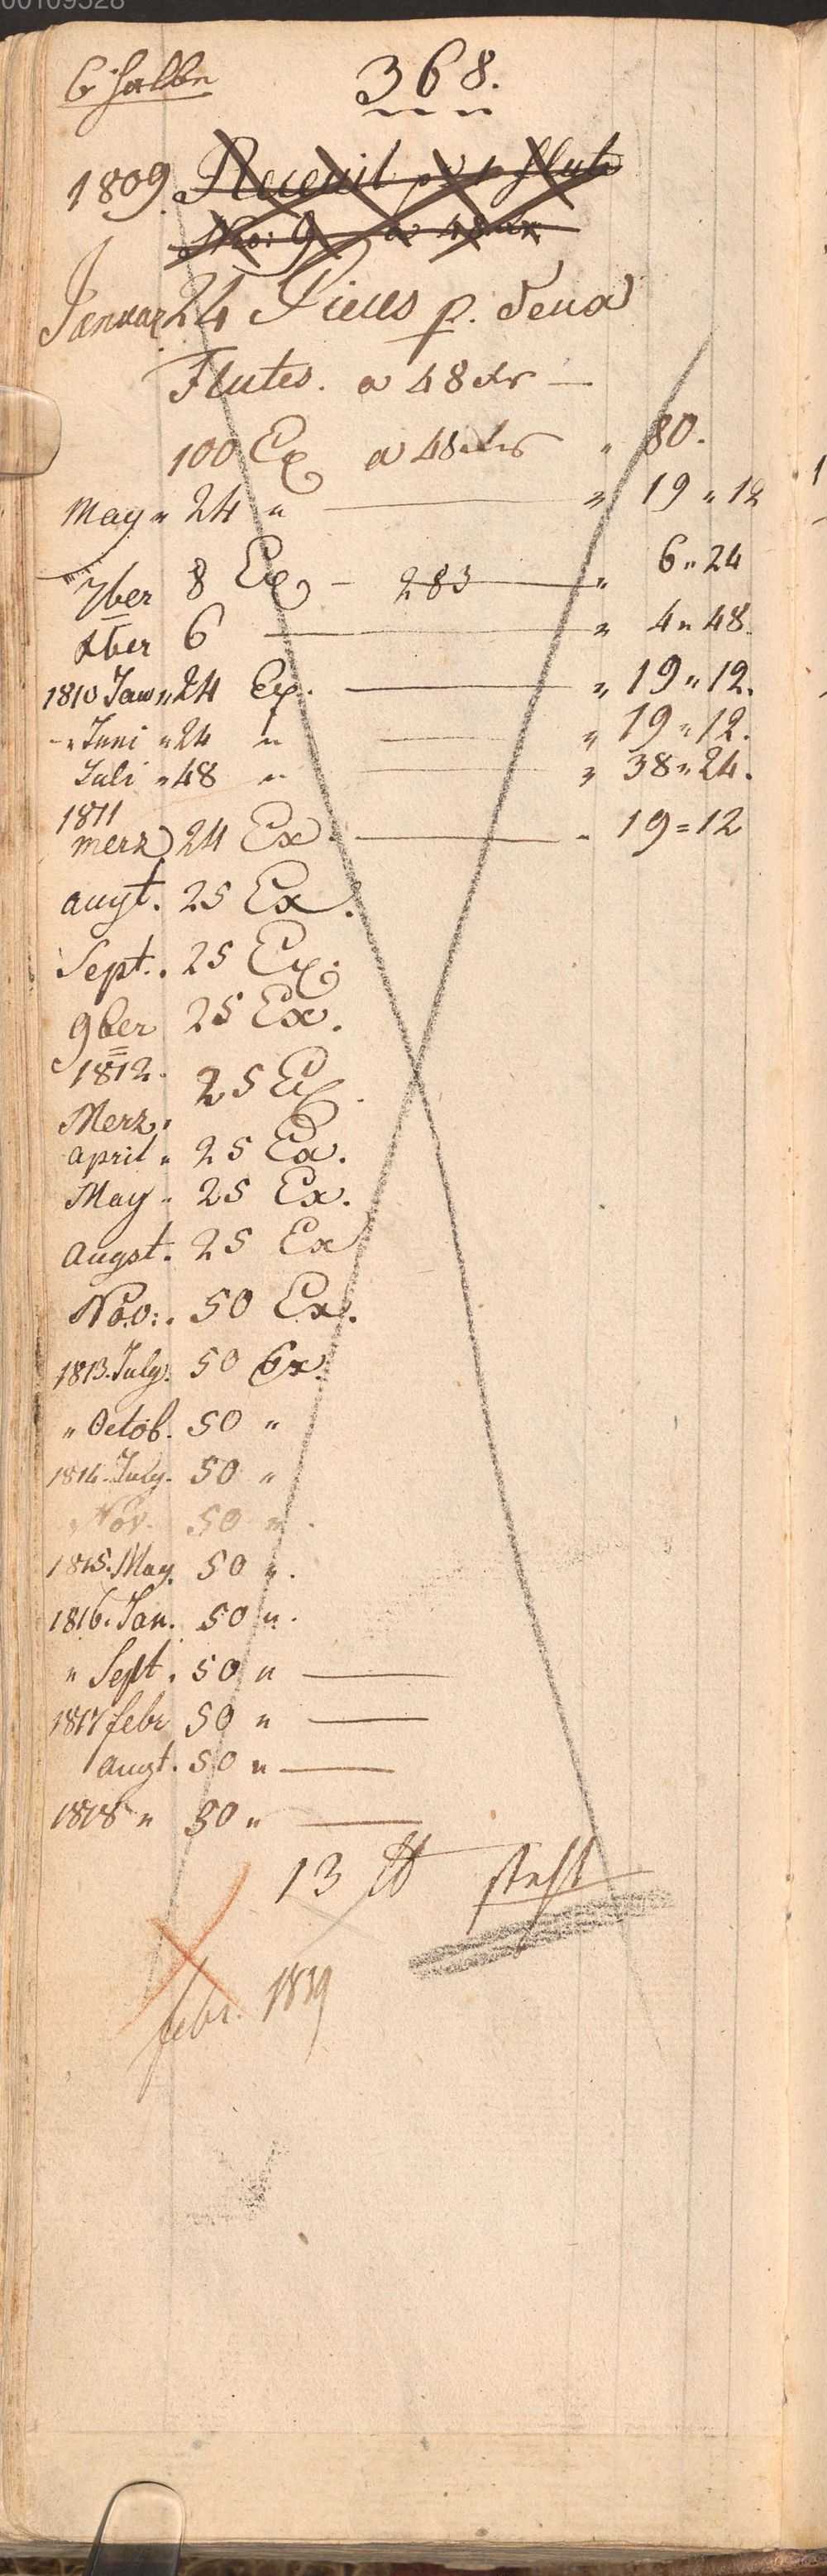 00109528
6 halbe
368.
1809. Receuil pour flute
Nro: 9 a 48 xr
Januar 24 Pieces p. Deux
Flutes. a 48 xr —
100 Ex a 48 xrs „ 80.
May „ 24 „ — „ 19 „ 12
7ber 8 Ex — 283 — „ 6 „ 24
xber 6 — „ 4 „ 48.
1810 Jan „ 24 Ex. — „ 19 „ 12.
- „ Juni „ 24 „ — „ 19 „ 12.
Juli „ 48 „ — „ 38 „ 24.
1811
merz 24 Ex. — „ 19 = 12
augt. 25 Ex.
Sept. . 25 Ex.
9ber 25 Ex.
1812.
Merz. 25 Ex.
april „ 25 Ex.
May „ 25 Ex.
augst. 25 Ex
Nov: . 50 Ex.
1813. July. 50 Ex.
„ Octob. 50 „
1814. July. 50 „
„ Nov. 50 „ .
1815. May. 50 „ .
1816. Jan. 50 „ .
„ Sept. 50 „ —
1817 febr 50 „ —
augt. 50 „ —
1818 „ 30 „ —
13 ℔ steht
febr. 1819